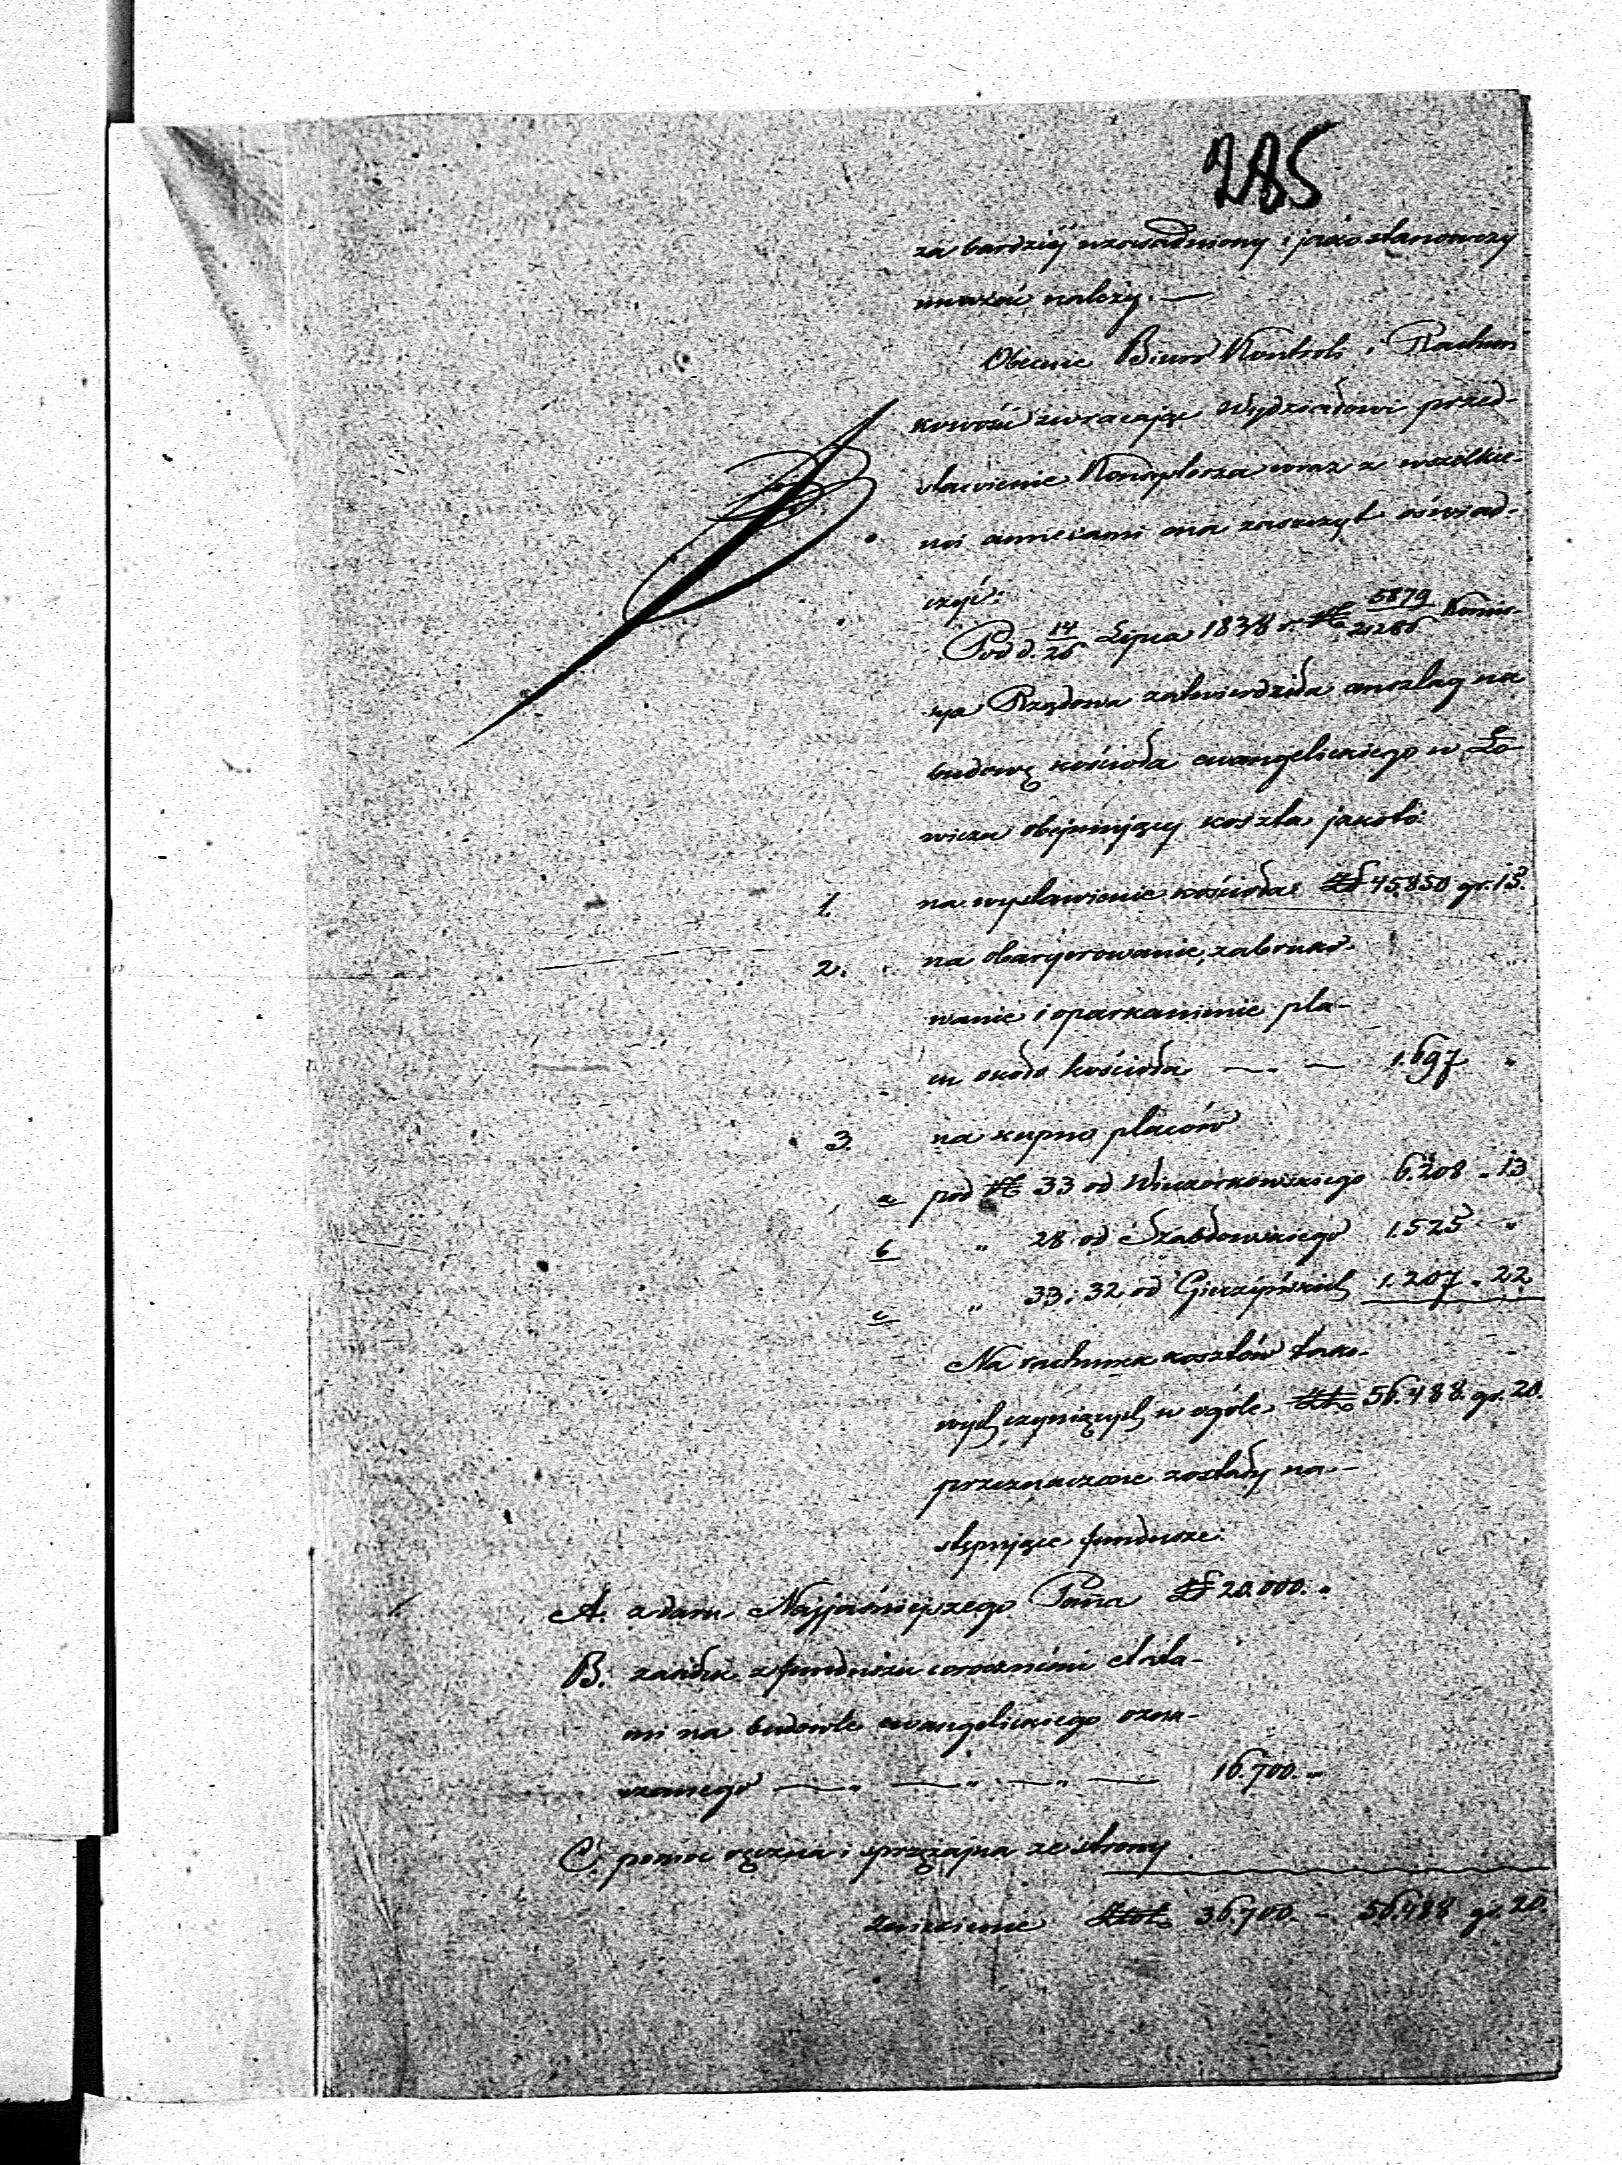 285
za bardziéj uzasadniony i jako stanowczy
uważać należy. —
Obecnie Biuro Kontroli i Rachun
kowości zwracając Wydziałowi przed-
stawienie Konsystorza wraz z wszelkie-
mi annexami ma zaszczyt oświad-
czyć:
Pod d. 14/26 Lipca 1838 r. № 5879/21286 Kommis-
sya Rządowa zatwierdziła anszlag na
budowę kościoła ewangelickiego w Ło
wiczu obejmujący koszta jakoto:
1. na wystawienie kościoła Zł 45.850 gr. 15.
2. na obaryerowanie, zabruko-
wanie i oparkanienie pla-
cu około kościoła — — 1.697 "
3. na kupno placów
a pod № 33 od Wieczorkowskiego 6.208 " 13
b " 28 od Szabłowskiego 1.525 "
c " 33 i 32 od 1.207 " 22
Na rachunek kosztów tako-
wych czyniących w ogóle Złt. 56.488 gr. 20.
przeznaczone zostały na-
stępujące fundusze:
A. z daru Najjaśniejszego Pana Zł 20.000. "
B. zasiłek z funduszu corocznemi etata-
mi na budowle ewangelickiego ozna-
czonego — " — " — " — 16.700. "
C. pomoc ręczna i sprzężajna ze strony
Złot. 36.700. — 56.488 gr. 20.